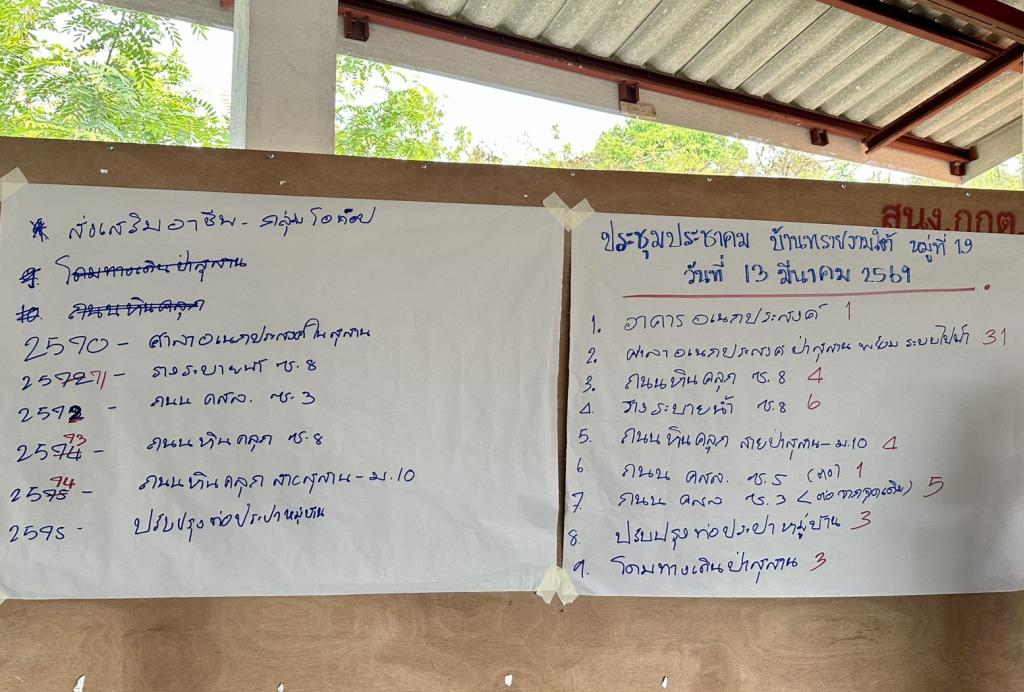 * ส่งเสริมอาชีพ - กลุ่มโอท็อป
9. โดมทางเดินป่าสุสาน
10. ถนนหินคลุก
2570 - ศาลาอเนกประสงค์ในสุสาน
2571 - รางระบายน้ำ ซ.8
2572 - ถนน คสล. ซ.3
2573 - ถนนหินคลุก ซ.8
2574 - ถนนหินคลุก สายสุสาน - ม.10
2575 - ปรับปรุงท่อประปาหมู่บ้าน
สนง.กกต.
ประชุมประชาคม บ้านทรายงามใต้ หมู่ที่ 19
วันที่ 13 มีนาคม 2569
1. อาคารอเนกประสงค์ 1
2. ศาลาอเนกประสงค์ ป่าสุสาน พร้อม ระบบไฟฟ้า 31
3. ถนนหินคลุก ซ.8 4
4. รางระบายน้ำ ซ.8 6
5. ถนนหินคลุก สายป่าสุสาน - ม.10 4
6. ถนน คสล. ซ.5 (ต่อ) 1
7. ถนน คสล ซ.3 (ต่อจากจุดเดิม) 5
8. ปรับปรุงท่อประปาหมู่บ้าน 3
9. โดมทางเดินป่าสุสาน 3